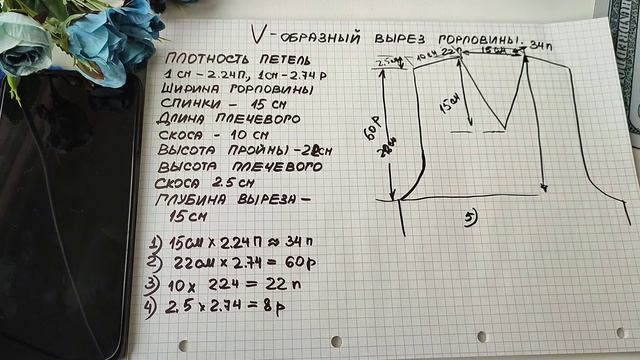 V-ОБРАЗНЫЙ ВЫРЕЗ ГОРЛОВИНЫ.
ПЛОТНОСТЬ ПЕТЕЛЬ
1 СМ – 2.24П, 1СМ – 2.74 Р
ШИРИНА ГОРЛОВИНЫ
СПИНКИ – 15 СМ
ДЛИНА ПЛЕЧЕВОГО
СКОСА – 10 СМ
ВЫСОТА ПРОЙМЫ – 22СМ
ВЫСОТА ПЛЕЧЕВОГО
СКОСА 2.5 СМ
ГЛУБИНА ВЫРЕЗА –
15 СМ
1) 15СМ × 2.24 П ≈ 34 П
2) 22СМ × 2.74 = 60Р
3) 10 × 224 = 22 П
4) 2.5 × 2.74 = 8 Р
2.5СМ
10 СМ 22 П
15СМ
34 П
15 СМ
60 Р
5)